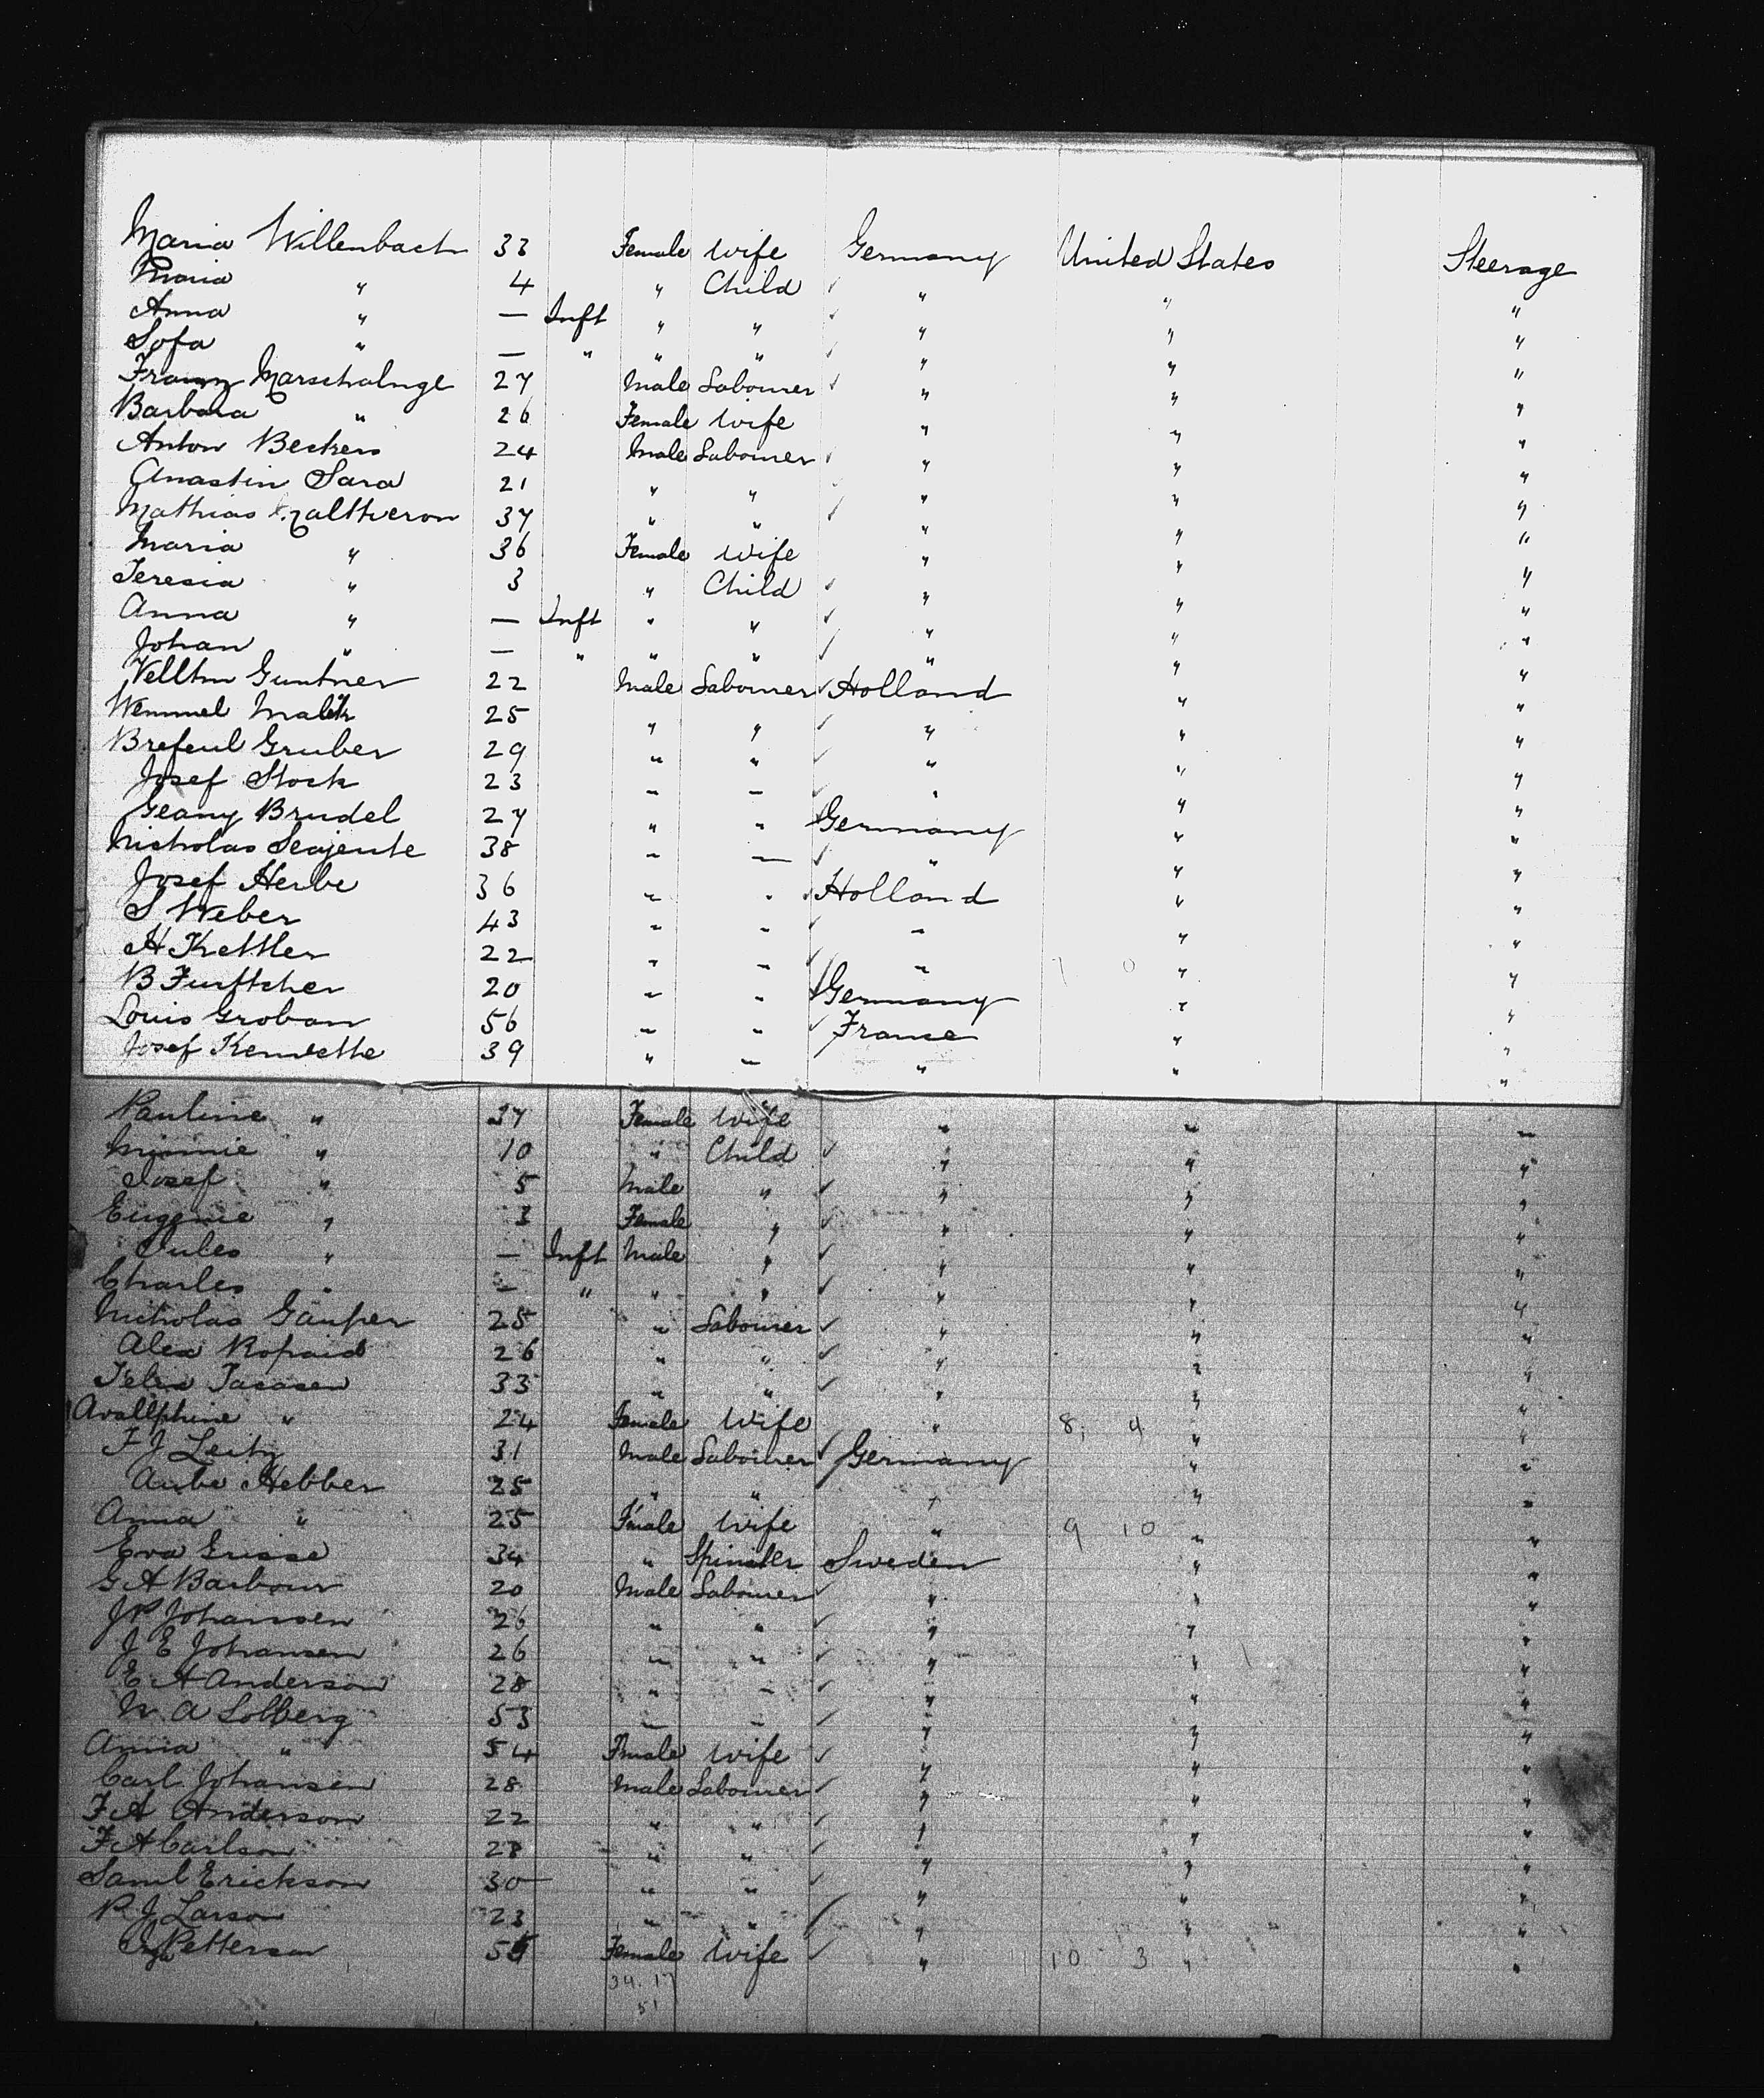 Maria Willenbach 33 Female Wife Germany United States Steerage
Maria " 4 " Child " " "
Anna " — Inft " " " " "
Sofa " — " " " " " "
Franz Marschalnge 27 Male Labourer " " "
Barbara " 26 Female Wife " " "
Anton Beckers 24 Male Labourer " " "
Anastin Sara 21 " " " " "
Mathias 37 " " " " "
Maria " 36 Female Wife " " "
Teresia " 3 " Child " " "
Anna " — Inft " " " " "
Johan " — " " " " " "
Velltm Guntner 22 Male Labourer Holland " "
Wemmel Malik 25 " " " " "
Brefeul Gruber 29 " " " " "
Josef Stock 23 " " " " "
Geany Brudel 27 " " Germany " "
Nicholas Seajeute 38 " " " " "
Josef Herbe 36 " " Holland " "
S Weber 43 " " " " "
H Kettler 22 " " " " "
B Furftcher 20 " " Germany " "
Louis Groban 56 " " France " "
Josef Kemvette 39 " " " " "
Pauline " 37 Female Wife " " "
Minnie " 10 " Child " " "
Josef " 5 Male " " " "
Eugenie " 3 Female " " " "
Jules " — Inft Male " " " "
Charles " — " " " " " "
Nicholas Gauper 25 " Labourer " " "
Alex Ropaid 26 " " " " "
Felix Jacasen 33 " " " " "
Avallphine " 24 Female Wife " 8 4 " "
F J Leitz 31 Male Labourer Germany " "
Aube Hebber 25 " " " " "
Anna " 25 Female Wife " 9 10 " "
Eva Grisse 34 " Spinster Sweden " "
G A Barbour 20 Male Labourer " " "
J P Johanssen 26 " " " " "
J E Johansen 26 " " " " "
E A Anderson 28 " " " " "
N A Solberg 53 " " " " "
Anna " 54 Female Wife " " "
Carl Johansen 28 Male Labourer " " "
F A Anderson 22 " " " " "
F A Carlson 28 " " " " "
Saml Erickson 30 " " " " "
P J Larson 23 " " " " "
Petterson Female Wife " 10 3 " "
34. 17
51